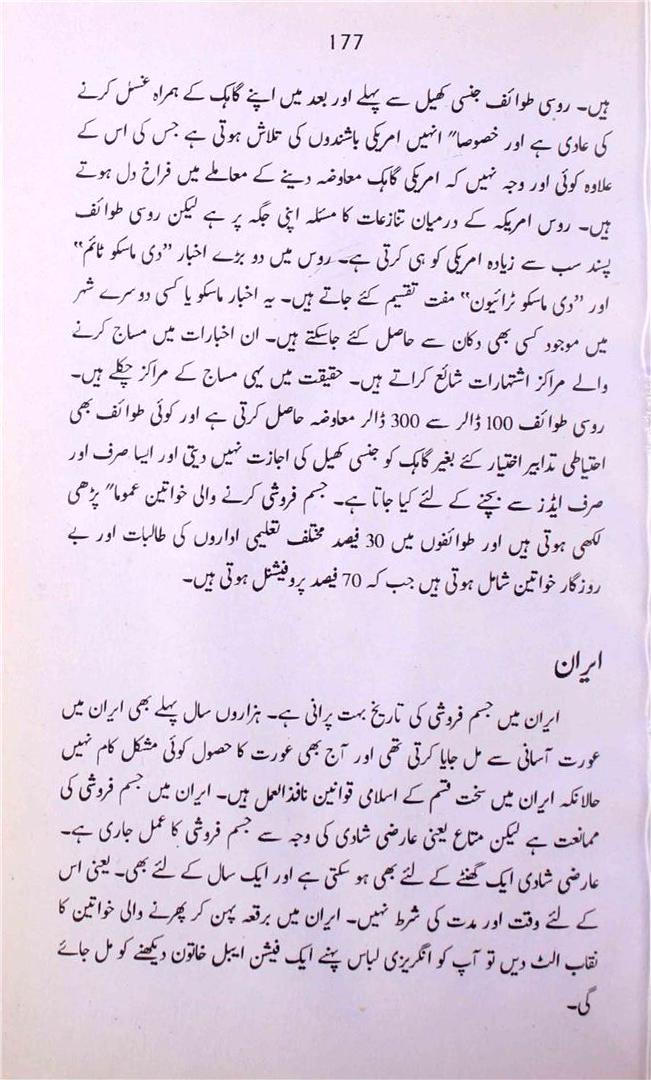 177
ہیں۔ روسی طوائف جنسی کھیل سے پہلے اور بعد میں اپنے گاہک کے ہمراہ غسل کرنے
کی عادی ہے اور خصوصا" انہیں امریکی باشندوں کی تلاش ہوتی ہے جس کی اس کے
علاوہ کوئی اور وجہ نہیں کہ امریکی گاہک معاوضہ دینے کے معاملے میں فراخ دل ہوتے
ہیں۔ روس امریکہ کے درمیان تنازعات کا مسئلہ اپنی جگہ پر ہے لیکن روسی طوائف
پسند سب سے زیادہ امریکی کو ہی کرتی ہے۔ روس میں دو بڑے اخبار "دی ماسکو ٹائم"
اور "دی ماسکو ٹرائیون" مفت تقسیم کئے جاتے ہیں۔ یہ اخبار ماسکو یا کسی دوسرے شہر
میں موجود کسی بھی دکان سے حاصل کئے جاسکتے ہیں۔ ان اخبارات میں مساج کرنے
والے مراکز اشتہارات شائع کراتے ہیں۔ حقیقت میں یہی مساج کے مراکز چکلے ہیں۔
روسی طوائف 100 ڈالر سے 300 ڈالر معاوضہ حاصل کرتی ہے اور کوئی طوائف بھی
احتیاطی تدابیر اختیار کئے بغیر گاہک کو جنسی کھیل کی اجازت نہیں دیتی اور ایسا صرف اور
صرف ایڈز سے بچنے کے لئے کیا جاتا ہے۔ جسم فروشی کرنے والی خواتین عموما" پڑھی
لکھی ہوتی ہیں اور طوائفوں میں 30 فیصد مختلف تعلیمی اداروں کی طالبات اور بے
روزگار خواتین شامل ہوتی ہیں جب کہ 70 فیصد پروفیشنل ہوتی ہیں۔
ایران
ایران میں جسم فروشی کی تاریخ بہت پرانی ہے۔ ہزاروں سال پہلے بھی ایران میں
عورت آسانی سے مل جایا کرتی تھی اور آج بھی عورت کا حصول کوئی مشکل کام نہیں
حالانکہ ایران میں سخت قسم کے اسلامی قوانین نافذالعمل ہیں۔ ایران میں جسم فروشی کی
ممانعت ہے لیکن متاع یعنی عارضی شادی کی وجہ سے جسم فروشی کا عمل جاری ہے۔
عارضی شادی ایک گھنٹے کے لئے بھی ہو سکتی ہے اور ایک سال کے لئے بھی۔ یعنی اس
کے لئے وقت اور مدت کی شرط نہیں۔ ایران میں برقعہ پہن کر پھرنے والی خواتین کا
نقاب الٹ دیں تو آپ کو انگریزی لباس پہنے ایک فیشن ایبل خاتون دیکھنے کو مل جائے
گی۔